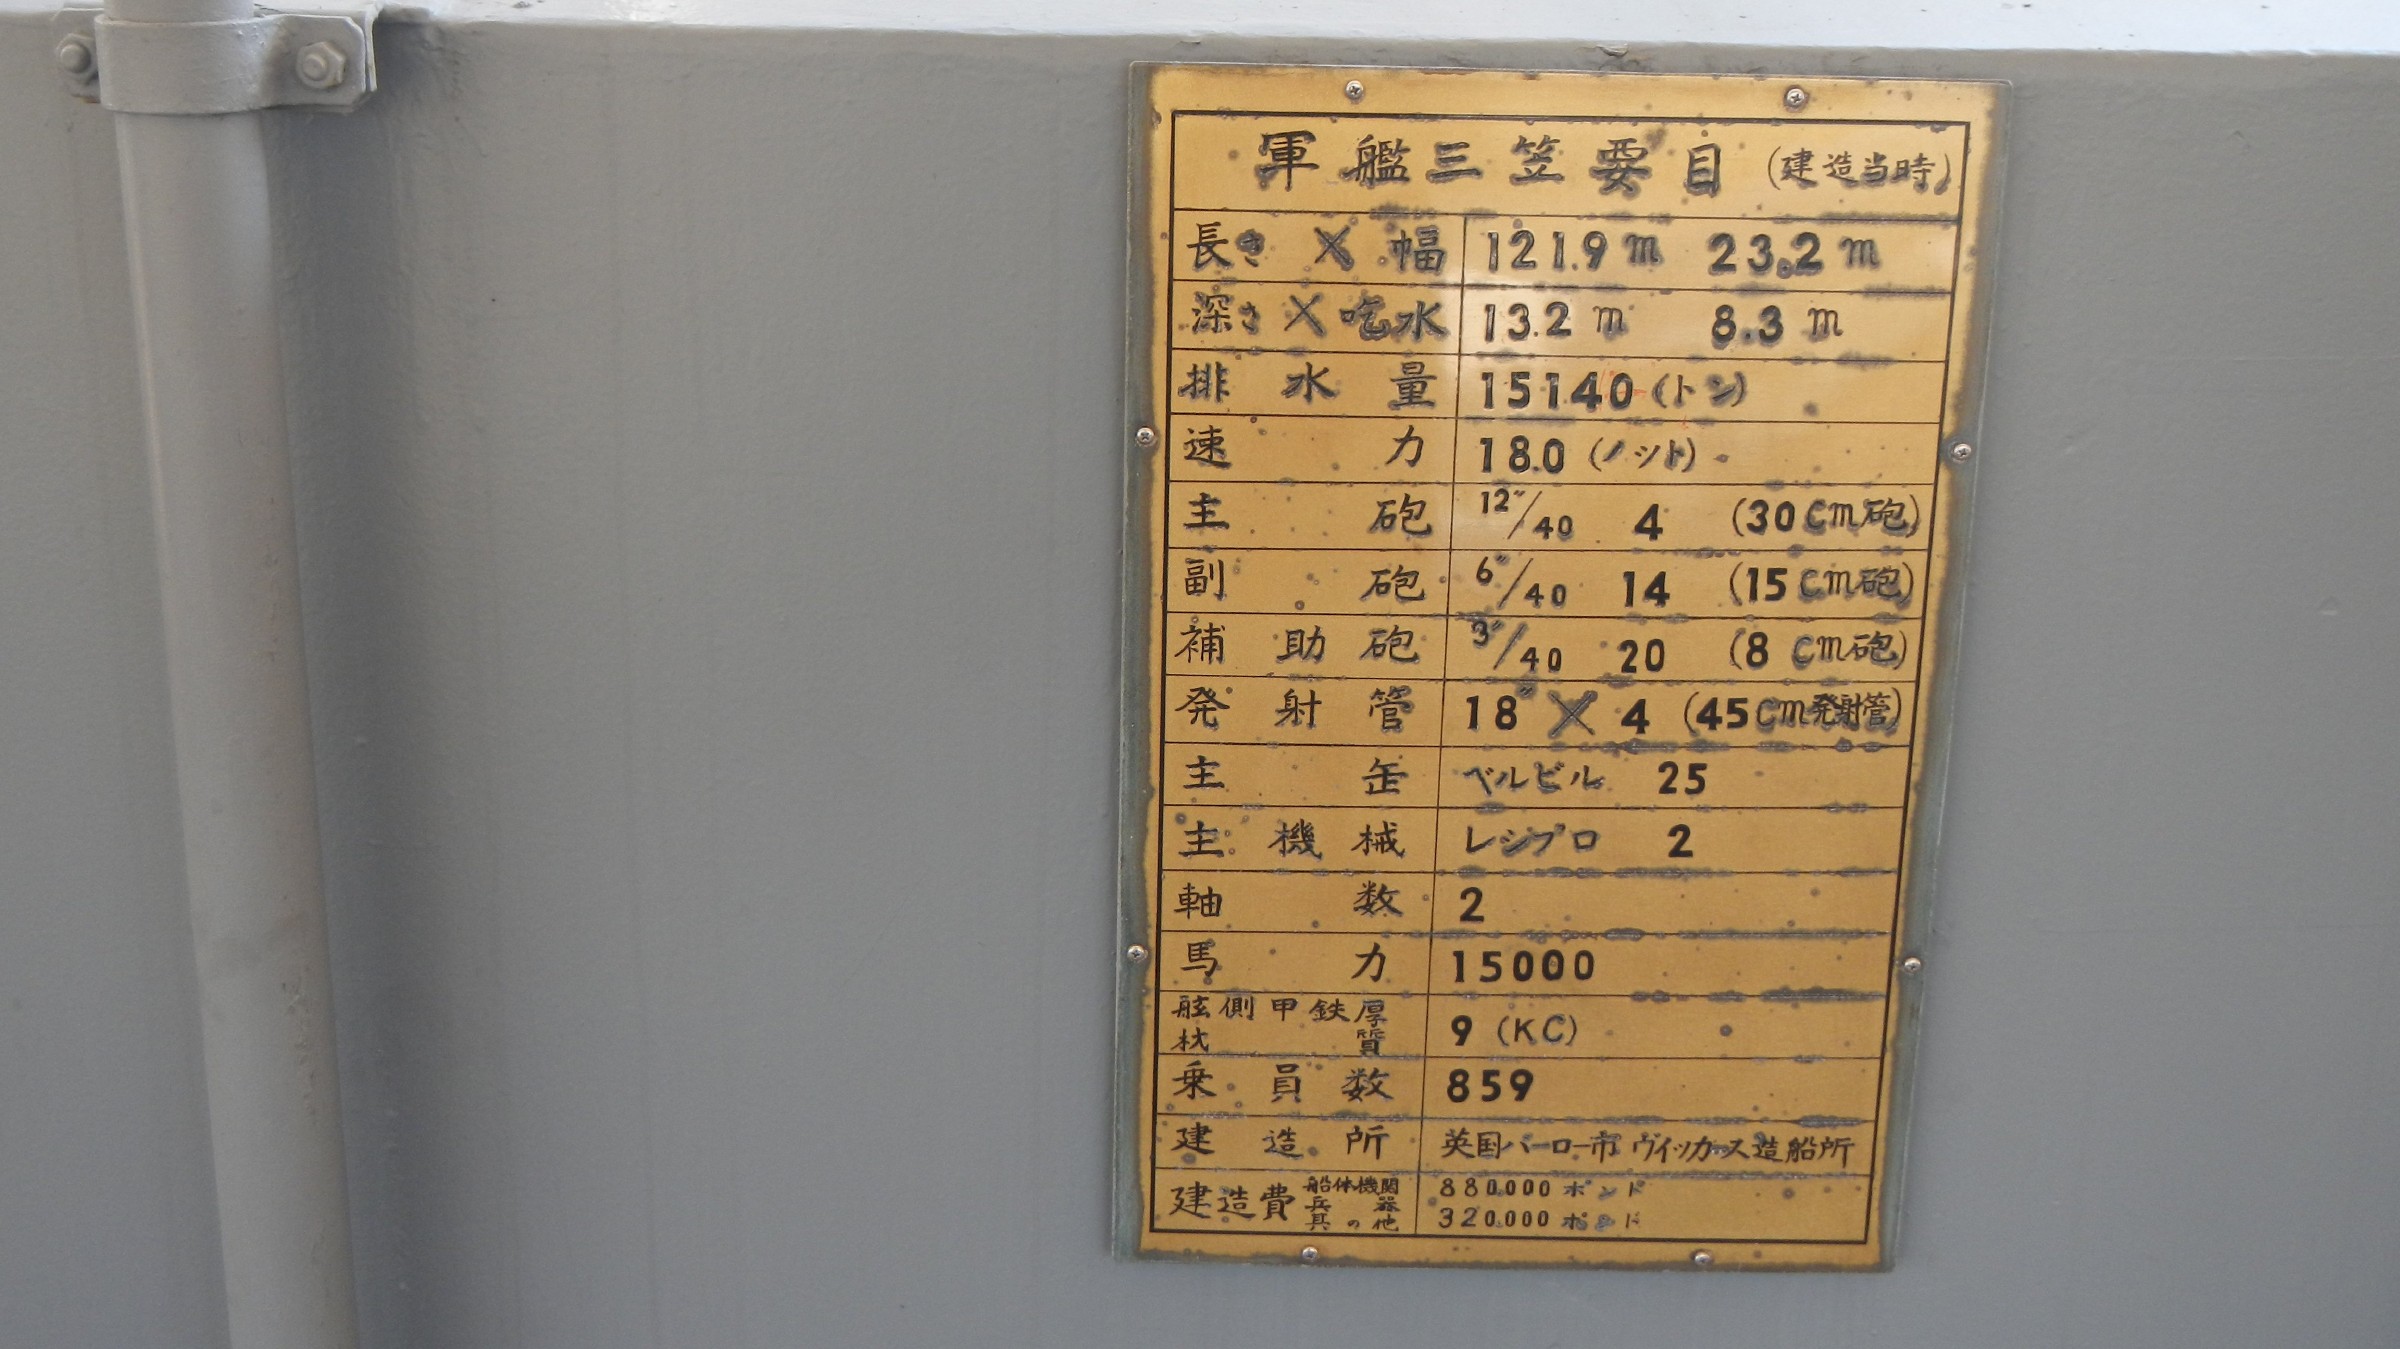 軍艦三笠要目(建造当時)
長さ×幅 121.9m 23.2m
深さ×吃水 13.2m 8.3m
排水量 15140(トン)
速力 18.0(ノット)
主砲 12″/40 4 (30cm砲)
副砲 6″/40 14 (15cm砲)
補助砲 3″/40 20 (8cm砲)
発射管 18″×4 (45cm発射管)
主缶 ベルビル 25
主機械 レシプロ 2
軸数 2
馬力 15000
舷側甲鉄厚 9 (KC)
材質
乗員数 859
建造所 英国バーロー市ヴィッカース造船所
建造費 船体機関 880.000ポンド
兵器
其の他 320.000ポンド